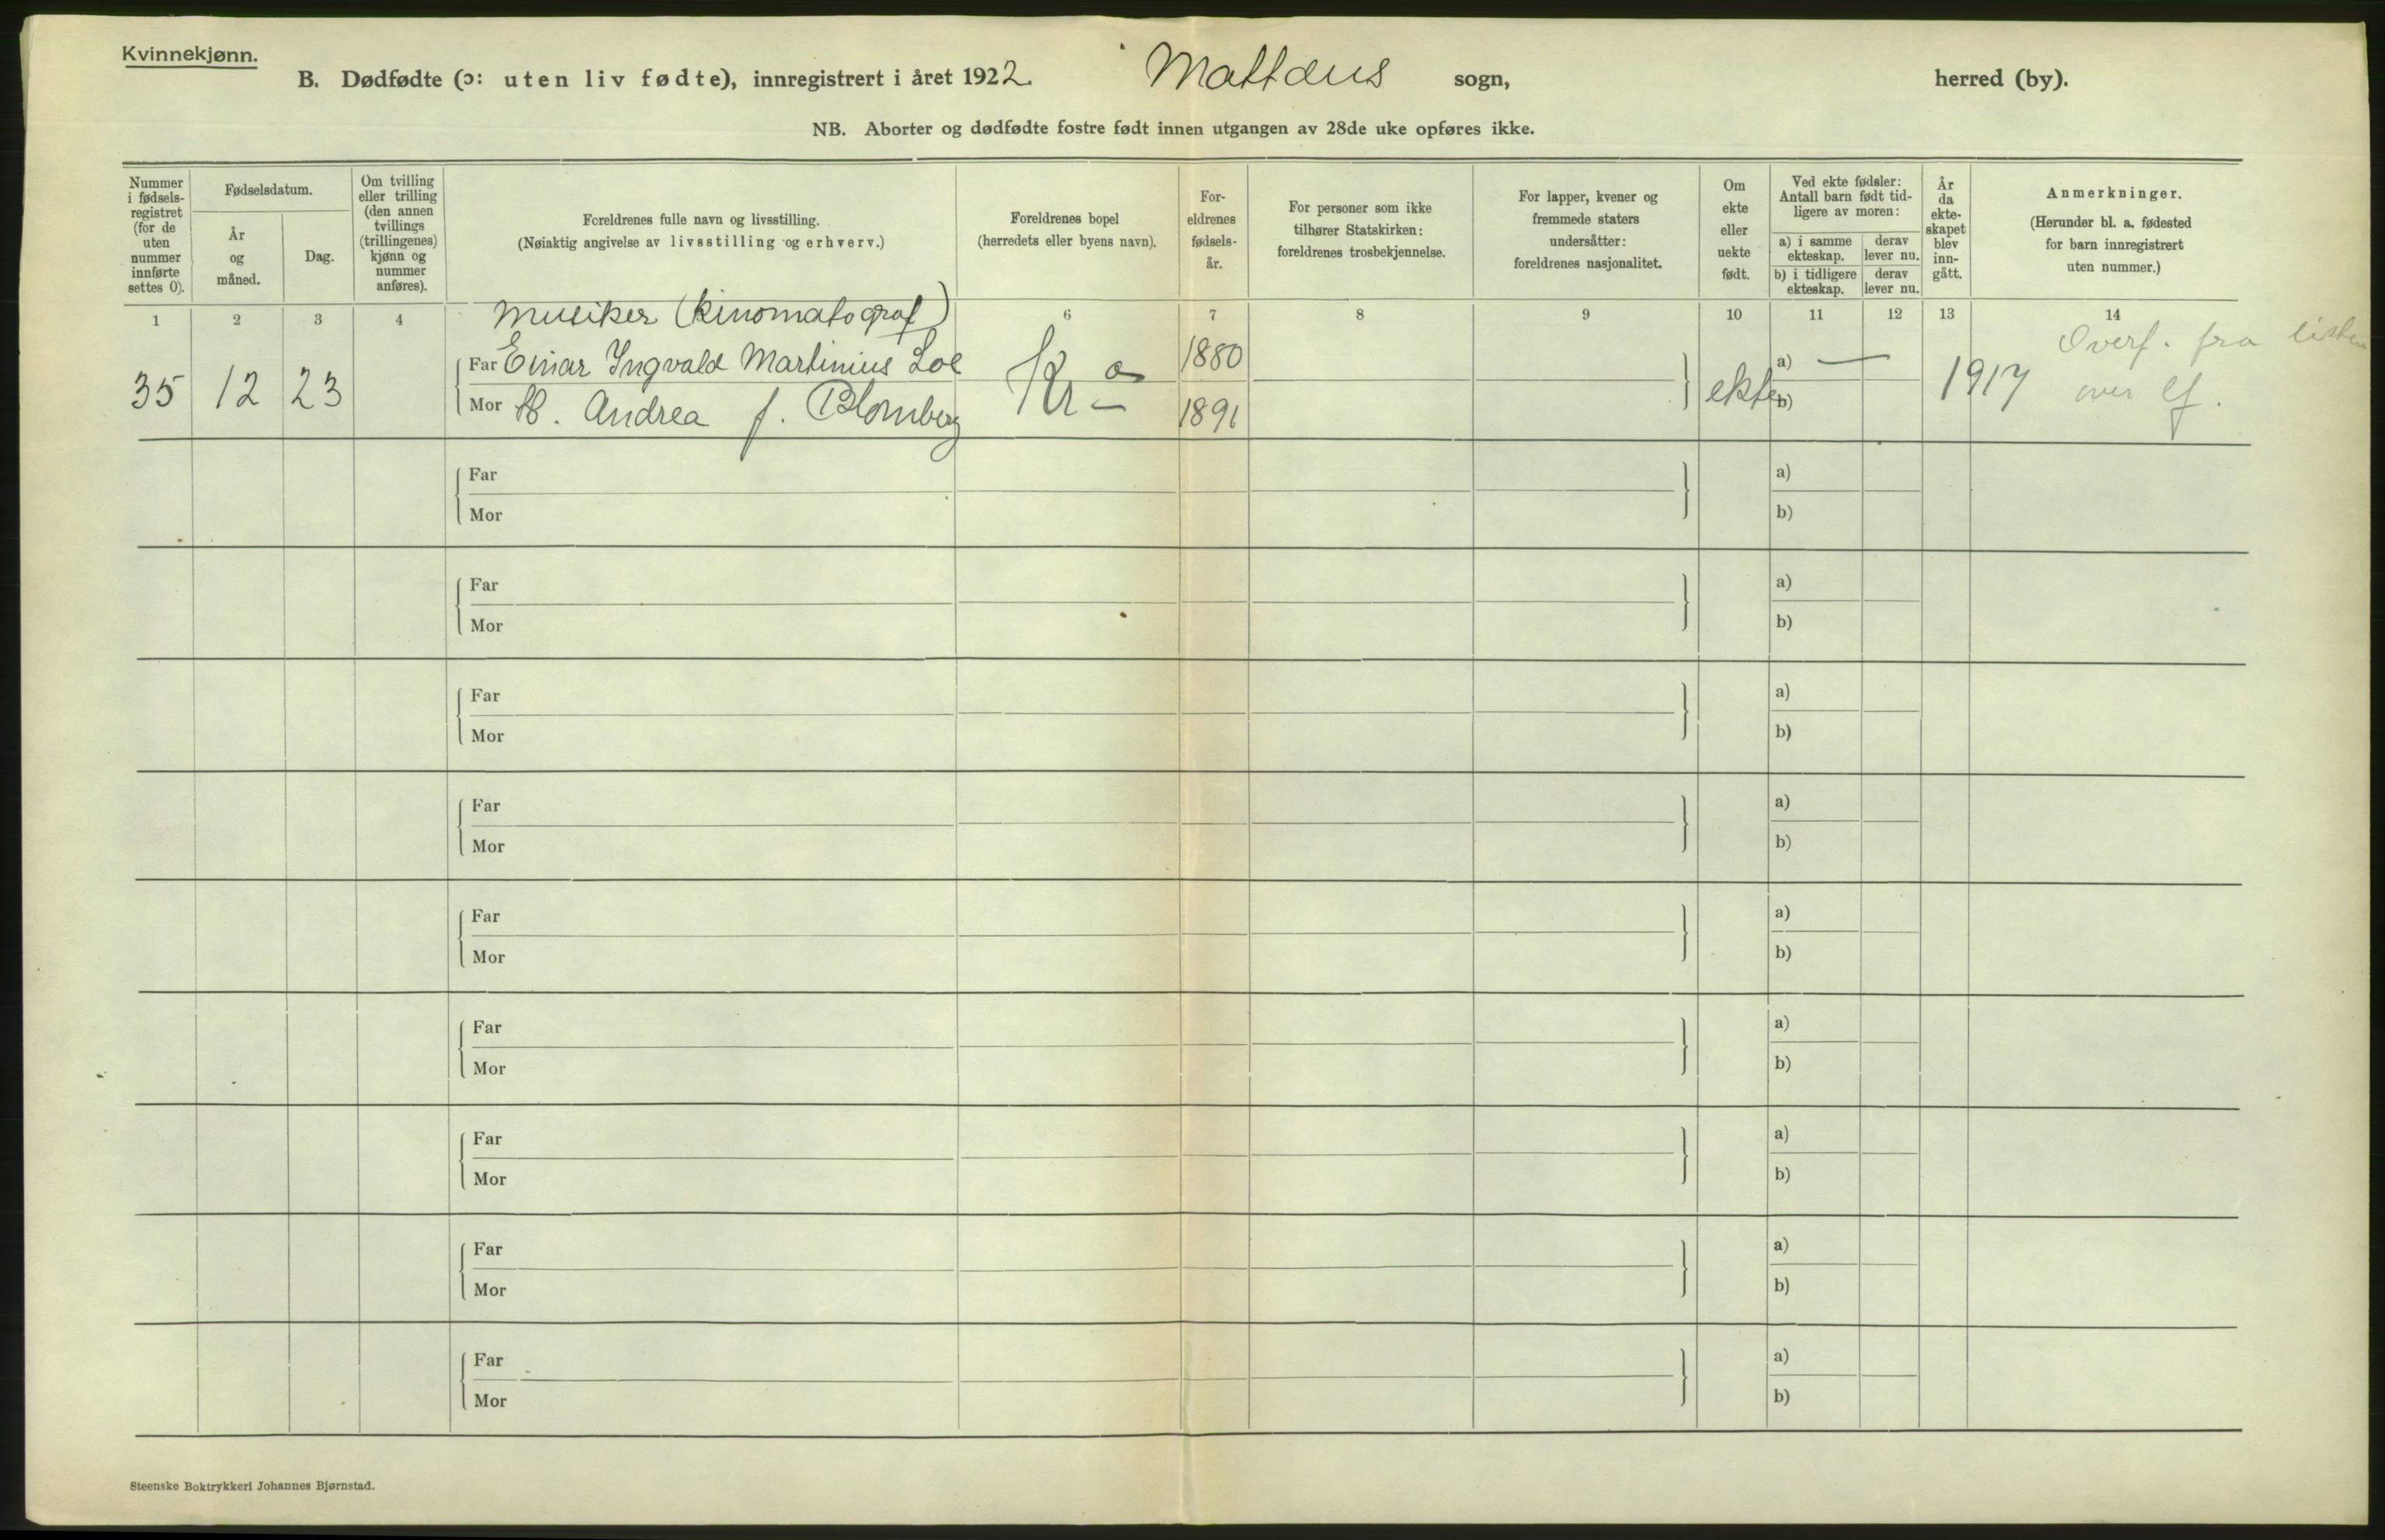 Kvinnekjønn.
B. Dødfødte (ɔ: uten liv fødte), innregistrert i året 1922. Mattæus sogn, herred (by).
NB. Aborter og dødfødte fostre født innen utgangen av 28de uke opføres ikke.
Nummer i fødsels-registret (for de uten nummer innførte settes 0).
Fødselsdatum.
År og måned.
Dag.
Om tvilling eller trilling (den annen tvillings (trillingenes) kjønn og nummer anføres).
Foreldrenes fulle navn og livsstilling.
(Nøiaktig angivelse av livsstilling og erhverv.)
Foreldrenes bopel
(herredets eller byens navn).
For-eldrenes fødsels-år.
For personer som ikke tilhører Statskirken: foreldrenes trosbekjennelse.
For lapper, kvener og fremmede staters undersåtter: foreldrenes nasjonalitet.
Om ekte eller uekte født.
Ved ekte fødsler: Antall barn født tid-ligere av moren:
a) i samme ekteskap. derav lever nu.
b) i tidligere ekteskap. derav lever nu.
År da ekte-skapet blev inn-gått.
Anmerkninger.
(Herunder bl. a. fødested for barn innregistrert uten nummer.)
1 2 3 4 6 7 8 9 10 11 12 13 14
Musiker (kinomatograf)
35 12 23 Far Einar Ingvald Martinius Loe Kra 1880 ekte a) — 1917 Overf. fra listen
Mor H. Andrea f. Blomberg 1891 b) over lf.
Far a)
Mor b)
Far a)
Mor b)
Far a)
Mor b)
Far a)
Mor b)
Far a)
Mor b)
Far a)
Mor b)
Far a)
Mor b)
Far a)
Mor b)
Far a)
Mor b)
Steenske Boktrykkeri Johannes Bjørnstad.